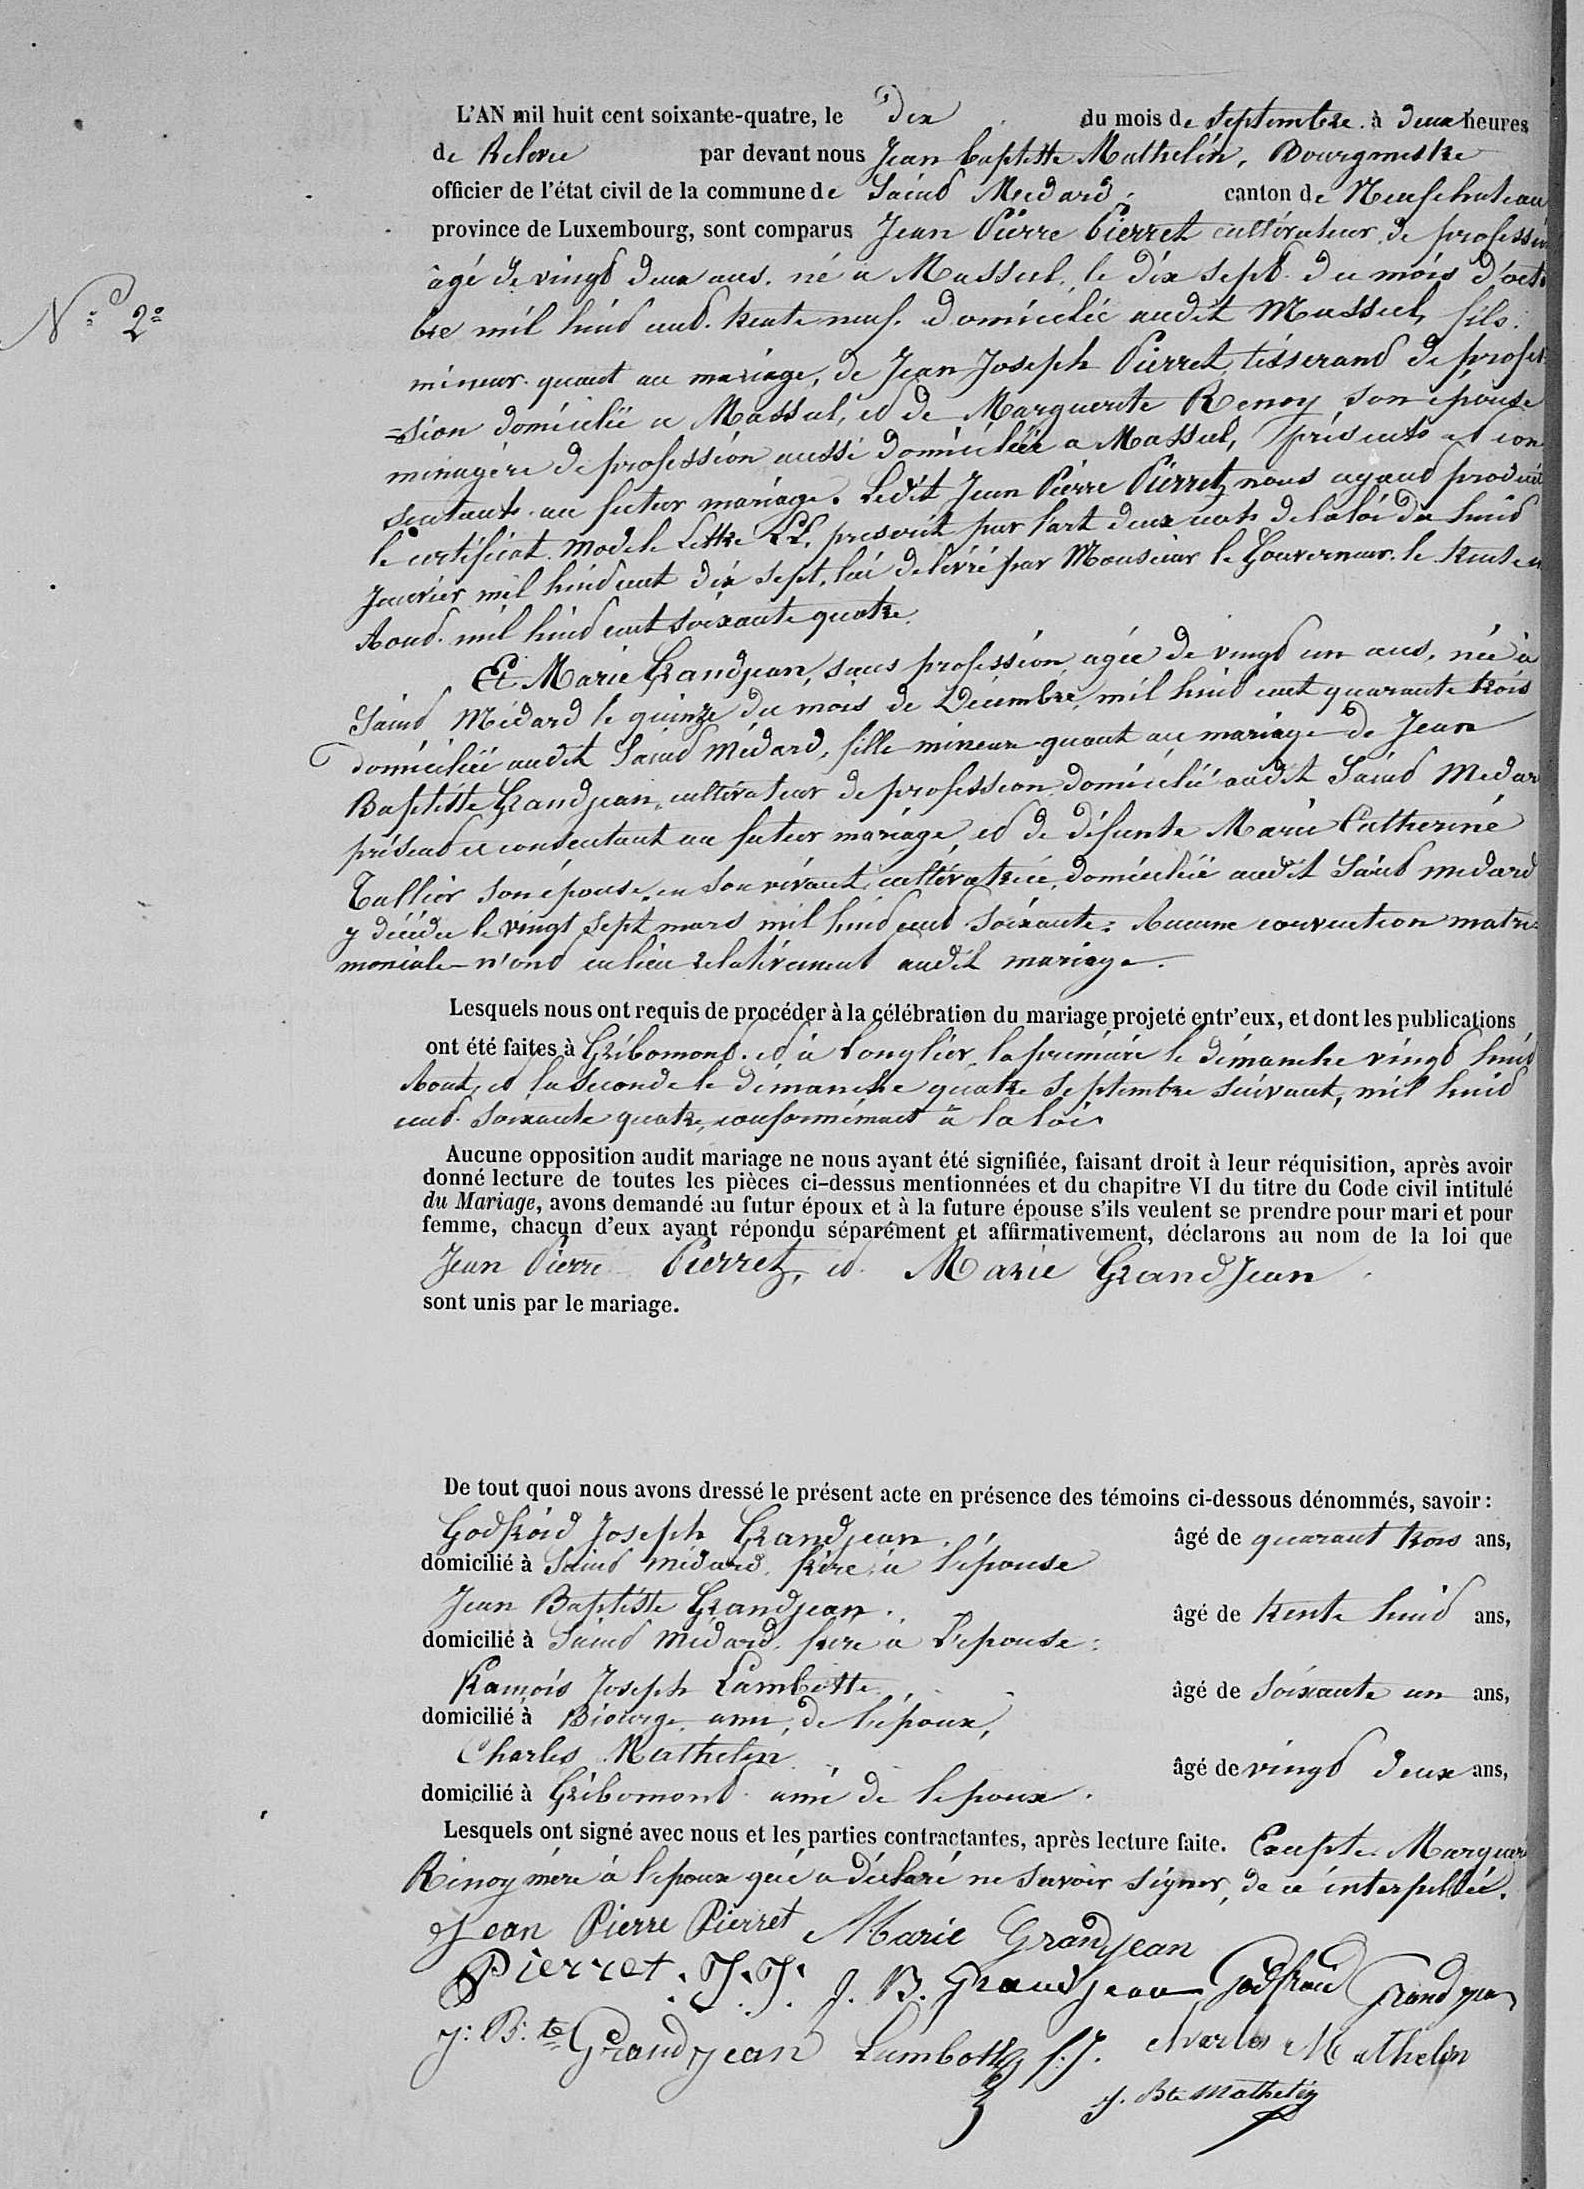 L'AN mil huit cent soixante-quatre, le dix du mois de Septembre à deux heures
de Relevée par devant nous Jean baptiste Mathelin, Bourgmestre
officier de l'état civil de la commune de Saind Médard, canton de Neufchateau
province de Luxembourg, sont comparus Jean Pierre Pierret cultivateur de profession
âgé de vingd deux ans, né a Massul, le dix sept du mois d'octo
bre mil huid cend trente neuf. domicilié audit Massul, fils
mineur quant au mariage, de Jean Joseph Pierret, tisserand de profes
=sion domicilié a Massul, ed de Marguerite Renoy son épouse
ménagère de profession aussi domiciliée a Massul, présents et con
sentants au futur mariage. Ledit Jean Pierre Pierret, nous ayand produit
le certificat modele Lettre LL, prescrit par l'art deux cents de la loi du huid
Janvier mil huid cent dix sept, lui delivré par Monsieur le Gouverneur le trente
Aoud mil huid cent soixante quatre.
Et Marie Grandjean, sans profession, agée de vingd un ans, née à
Saind Médard le quinze du mois de Décembre, mil huid cent quarante trois
domiciliée audit Saind Médard, fille mineure quant au mariage de Jean
Baptiste Grandjean, cultivateur de profession domicilié audit Saind Medar
présend et consentant au futur mariage, ed de défunte Marie Catherine
Tallier son épouse en son vivant cultivatrice, domiciliée audit Saind medard
y décédée le vingt sept mars mil huid cend soixante. Aucune convention matri=
moniale n'ond eu lieu relativement audit mariage.
Lesquels nous ont requis de procéder à la célébration du mariage projeté entr'eux, et dont les publications
ont été faites à Gribomond. ed à Longlier, la premiére le dimanche vingd huid
Aout, ed la seconde le dimanche quatre Septembre suivant, mil huid
cend soixante quatre, conformément à la loi
Aucune opposition audit mariage ne nous ayant été signifiée, faisant droit à leur réquisition, après avoir
donné lecture de toutes les pièces ci-dessus mentionnées et du chapitre VI du titre du Code civil intitulé
du Mariage, avons demandé au futur époux et à la future épouse s'ils veulent se prendre pour mari et pour
femme, chacun d'eux ayant répondu séparément et affirmativement, déclarons au nom de la loi que
Jean Pierre Pierret, ed Marie GrandJean
sont unis par le mariage.
N° 2°
De tout quoi nous avons dressé le présent acte en présence des témoins ci-dessous dénommés, savoir :
Godfroid Joseph Grandjean. âgé de quarant trois ans,
domicilié à Saind médard frère à l'épouse
Jean Baptiste Grandjean. âgé de trente huid ans,
domicilié à Saind médard frère à l'epouse
françois Joseph Lambotte, âgé de soixante un ans,
domicilié à Biourge ami de l'époux,
Charles Mathelin âgé de vingd deux ans,
domicilié à Gribomond ami de lepoux.
Lesquels ont signé avec nous et les parties contractantes, après lecture faite. Excepté Marguer
Rinoy mère à lepoux qui a déclaré ne savoir signer, de ce interpellée.
Jean Pierre Pierret Marie Grandjean
Pierret. J.J. J. B. Grandjean Godfroid Grandjean
J: B:te Grandjean Lambotte f.J. Charles Mathelin
J. Bte Mathelin